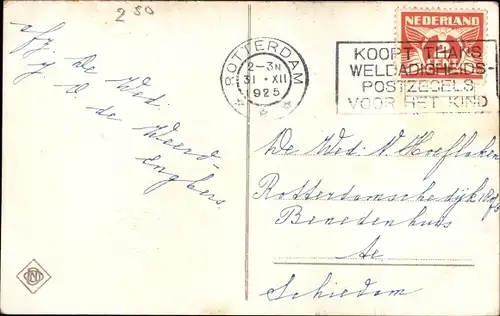 250
afz. De Wed.
J. v. de Weerd-
Engbers.
ROTTERDAM
2-3N
31 XII
1925
KOOPT THANS
WELDADIGHEIDS-
POSTZEGELS
VOOR HET KIND
NEDERLAND
CENT
De Wed. N. Hoefloken
Rotterdamschedijk
Benedenhuis
te
Schiedam